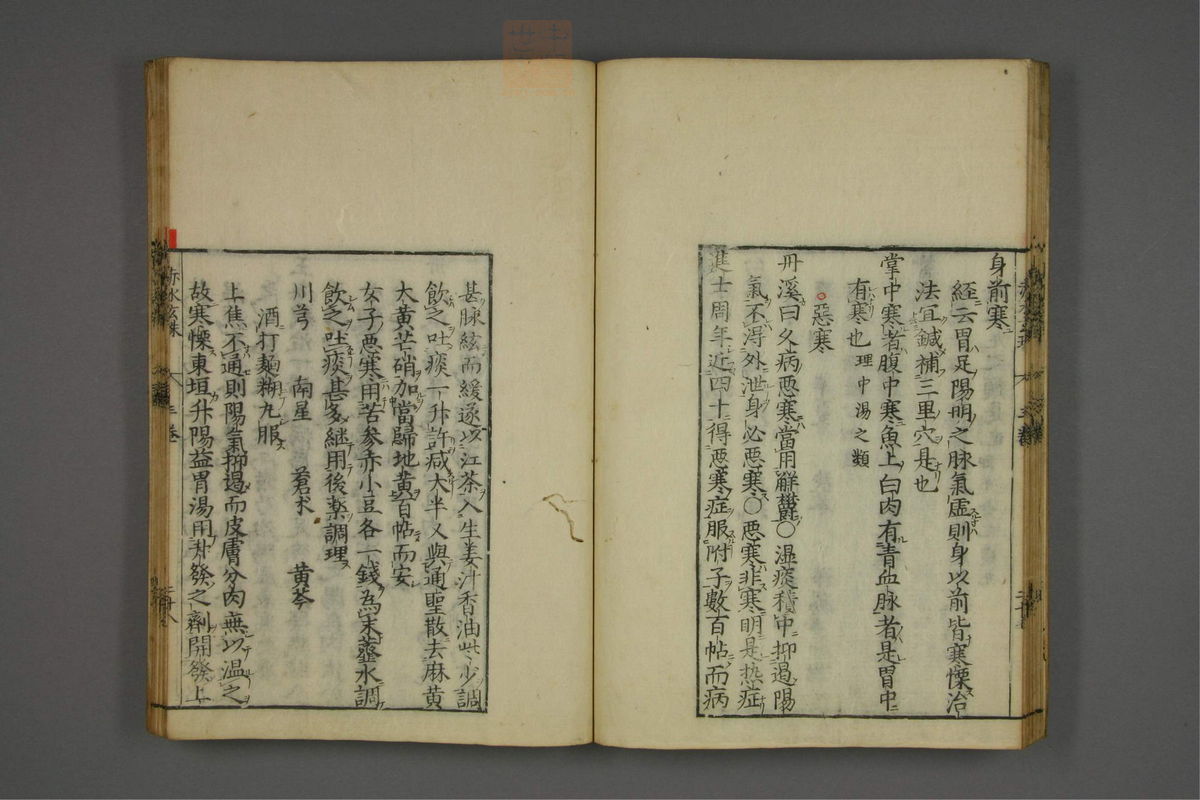 身前寒
經云胃足陽明之脉氣虛則身以前皆寒慄治
法宜鍼補三里穴是也
掌中寒者腹中寒魚上白肉有青血脉者是胃中
有寒也理中湯之類
惡寒
丹溪曰久病惡寒當用解欝○濕痰積中抑遏陽
氣不得外泄身必惡寒○惡寒非寒明是热症
進士周年近四十得惡寒症服附子數百帖而病
甚脉絃而緩遂以江茶入生姜汁香油些少調
飲之吐痰一升許减大半又與通聖散去麻黄
大黄芒硝加當歸地黄百帖而安
女子惡寒用苦参赤小豆各一錢為末虀水調
飲之吐痰甚多継用後藥調理
川芎 南星 蒼朮 黄芩
酒打麺糊丸服
上焦不通則陽氣抑遏而皮膚分肉無以温之
故寒慄東垣升陽益胃湯用升發之劑開發上
赤水玄珠 三卷